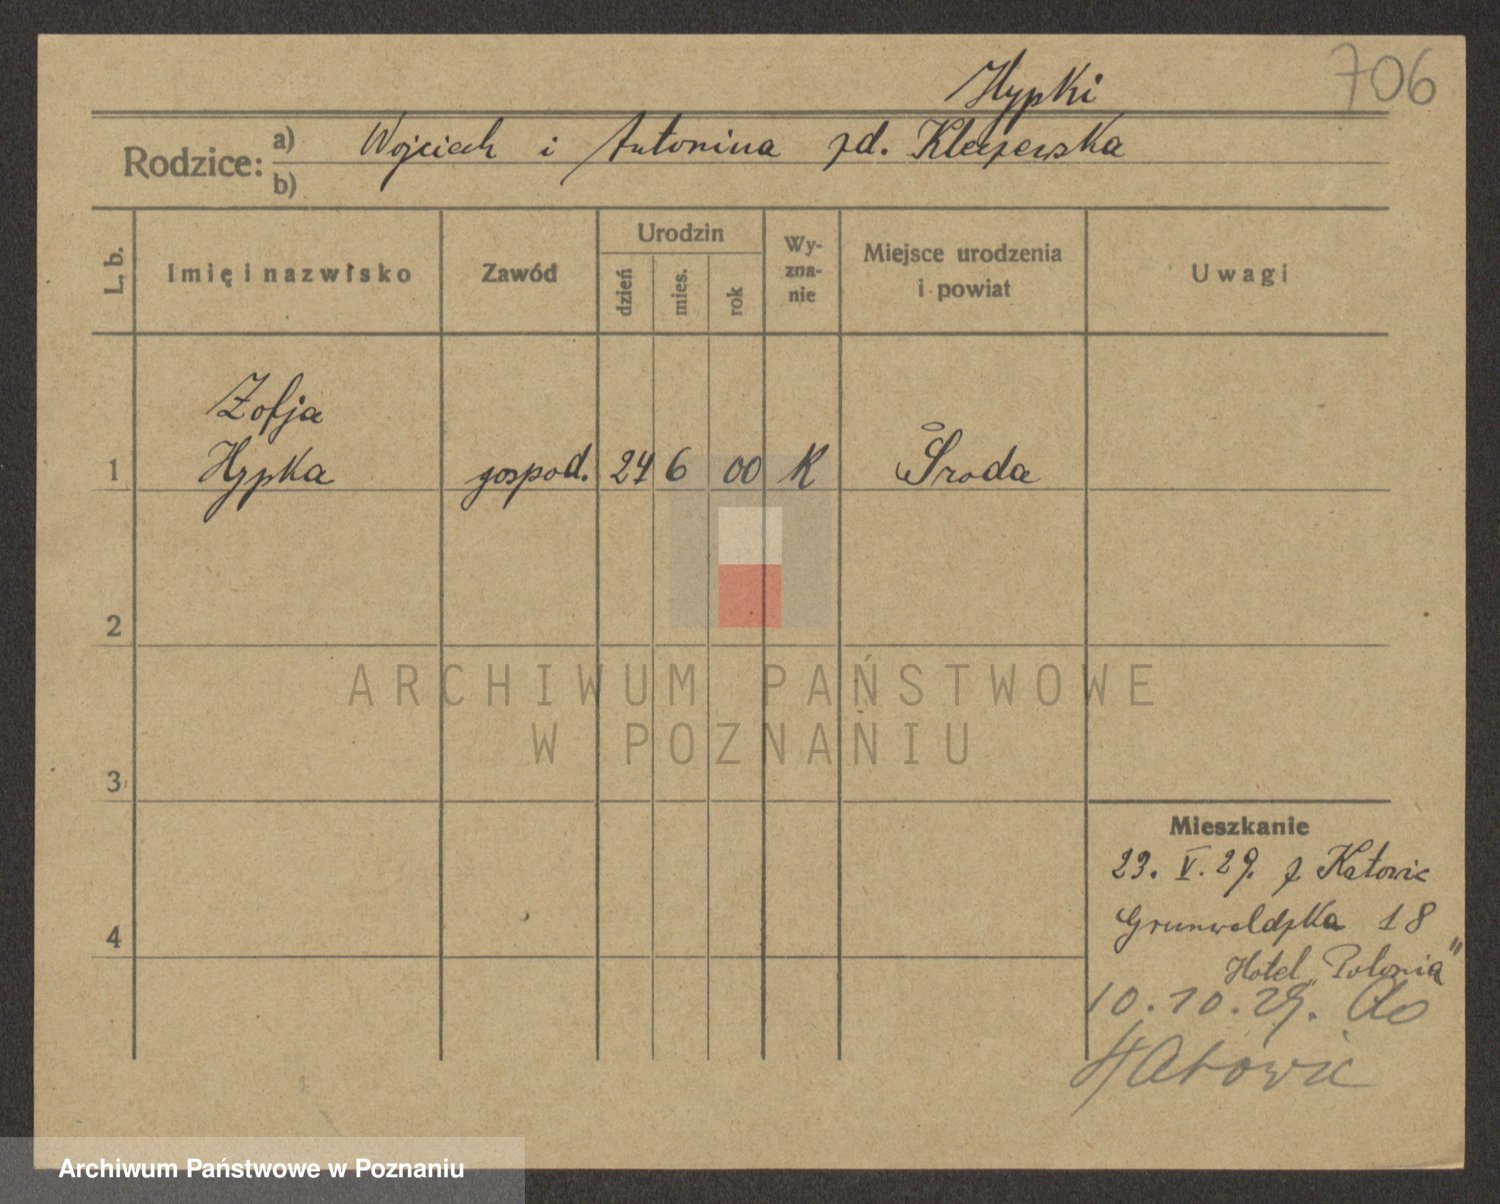 706
Hypki
Rodzice: a) Wojciech i Antonina zd.
b)
L. b. Imię i nazwisko Zawód Urodzin dzień mies. rok Wy-zna-nie Miejsce urodzenia i powiat Uwagi
Zofja
1 Hypka gospod. 24 6 00 K Środa
2
ARCHIWUM PAŃSTWOWE
W POZNANIU
3
Mieszkanie
23. V. 29. z Katowic
4 Grunwaldzka 18
Hotel „Polonia"
10.10.29. do
Katowic
Archiwum Państwowe w Poznaniu